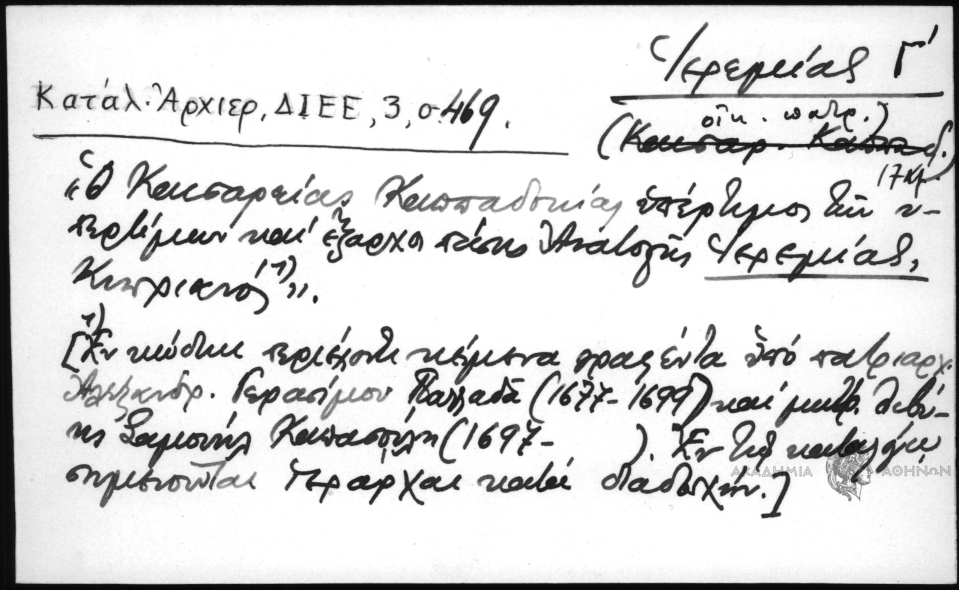 Ἱερεμίας Γ'
Κατάλ. Ἀρχιερ, ΔΙΕΕ, 3, σ. 469.
οἰκ. πατρ.
(Καισαρ. Καππαδ.)
17 Κγ.
"Ὁ Καισαρείας Καππαδοκίας ὑπέρτιμος τῶν ὑ-
περτίμων καί ἔξαρχος πάσης Ἀνατολῆς Ἱερεμίας,
Κυπριανός 1)".
[1) Ἐν κώδικι περιέχοντι κείμενα γραφέντα ὑπό πατριάρχ.
Ἀλεξανδρ. Γερασίμου Παλλαδᾶ (1677-1699) καί μητρ. Λιβύ-
ης Σαμουήλ Καπασούλη (1697- ). Ἐν τῷ καταλόγῳ
σημειοῦνται ἱεράρχαι κατά διαδοχήν.]
ΑΚΑΔΗΜΙΑ ΑΘΗΝΩΝ